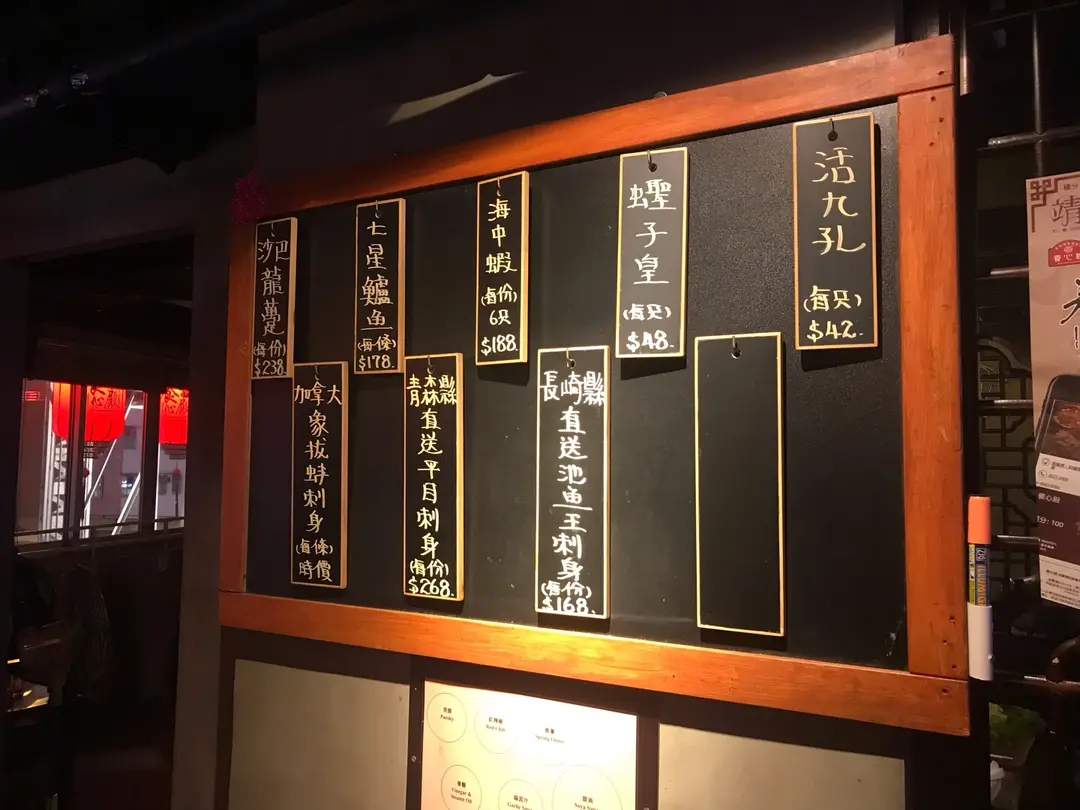 沙巴龍躉
(每份)
$238.
七星鱸魚
(每條)
$178.
海中蝦
(每份)
6只
$188.
蟶子皇
(每只)
$48.
活九孔
(每只)
$42.
加拿大
象拔蚌刺身
(每條)
時價
青森縣
直送平目刺身
(每份)
$268.
長崎縣
直送池魚王刺身
(每份)
$168.
靖
Parsley
紅辣椒
Red Chili
Spring Onion
Vinegar &
Sesame Oil
Garlic